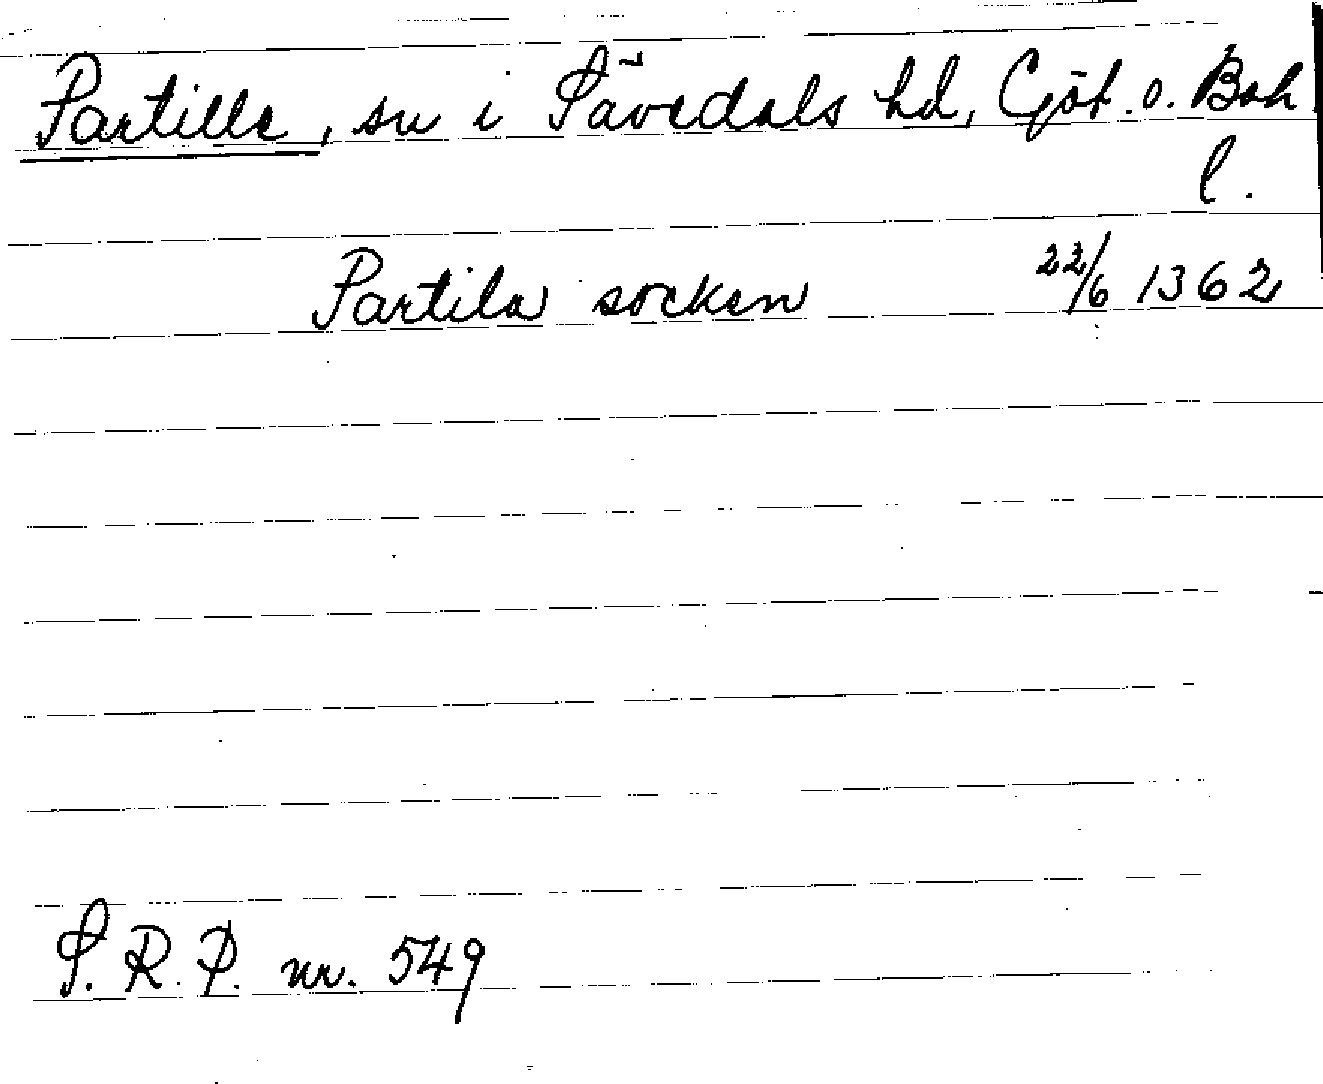 Partille, sn i Sävedals hd, Göt. o. Boh
l.
Partila socken 22/6 1362
S.R.P. nr. 549